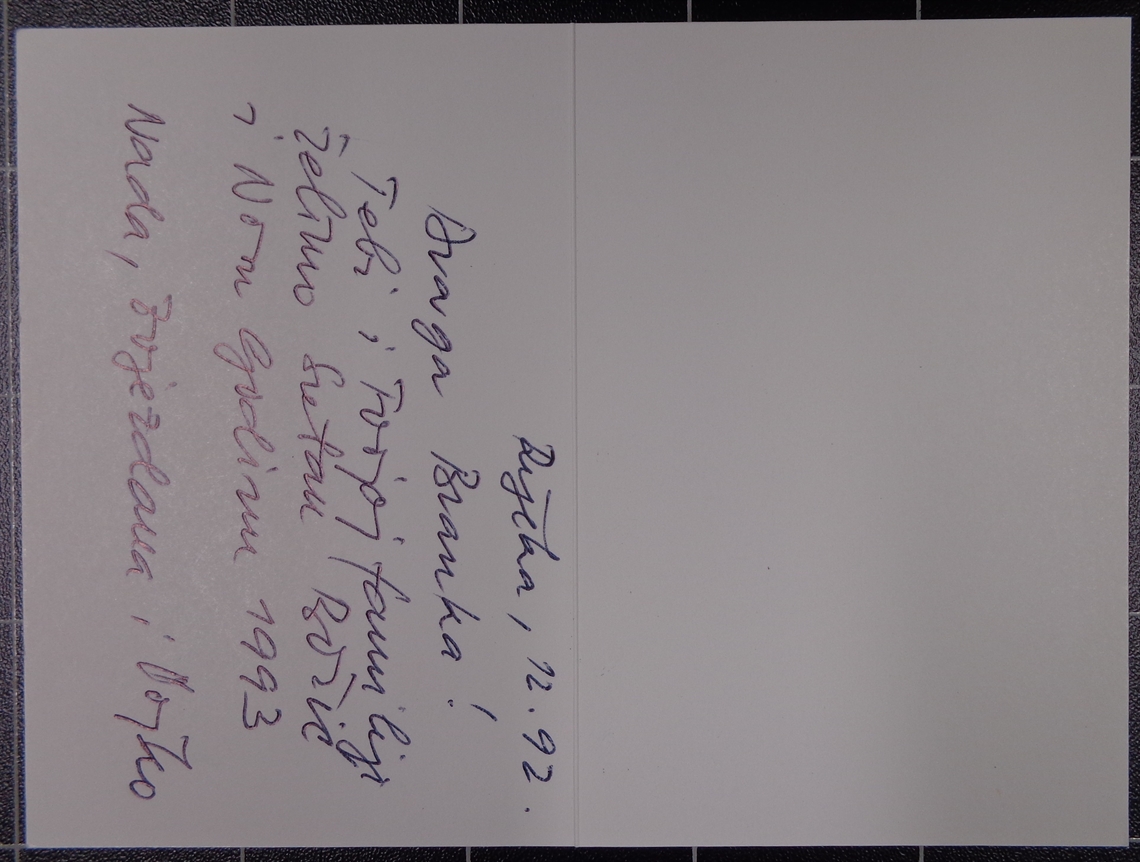 Rijeka, 12.92.
Draga Branka!
Tebi i Tvojoj familiji
želimo Sretan Božić
i Novu Godinu 1993
Nada, Zvjezdana i Vojko